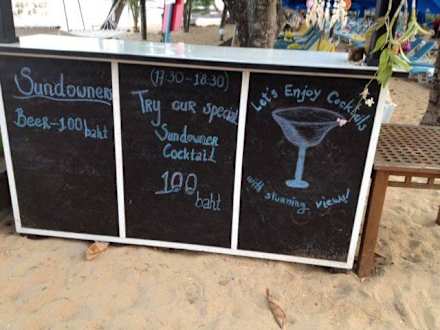 Sundowners
Beer-100 baht
(17:30-18:30)
Try our special
Sundowner
Cocktail
100 baht
Let's Enjoy Cocktails
with stunning views!